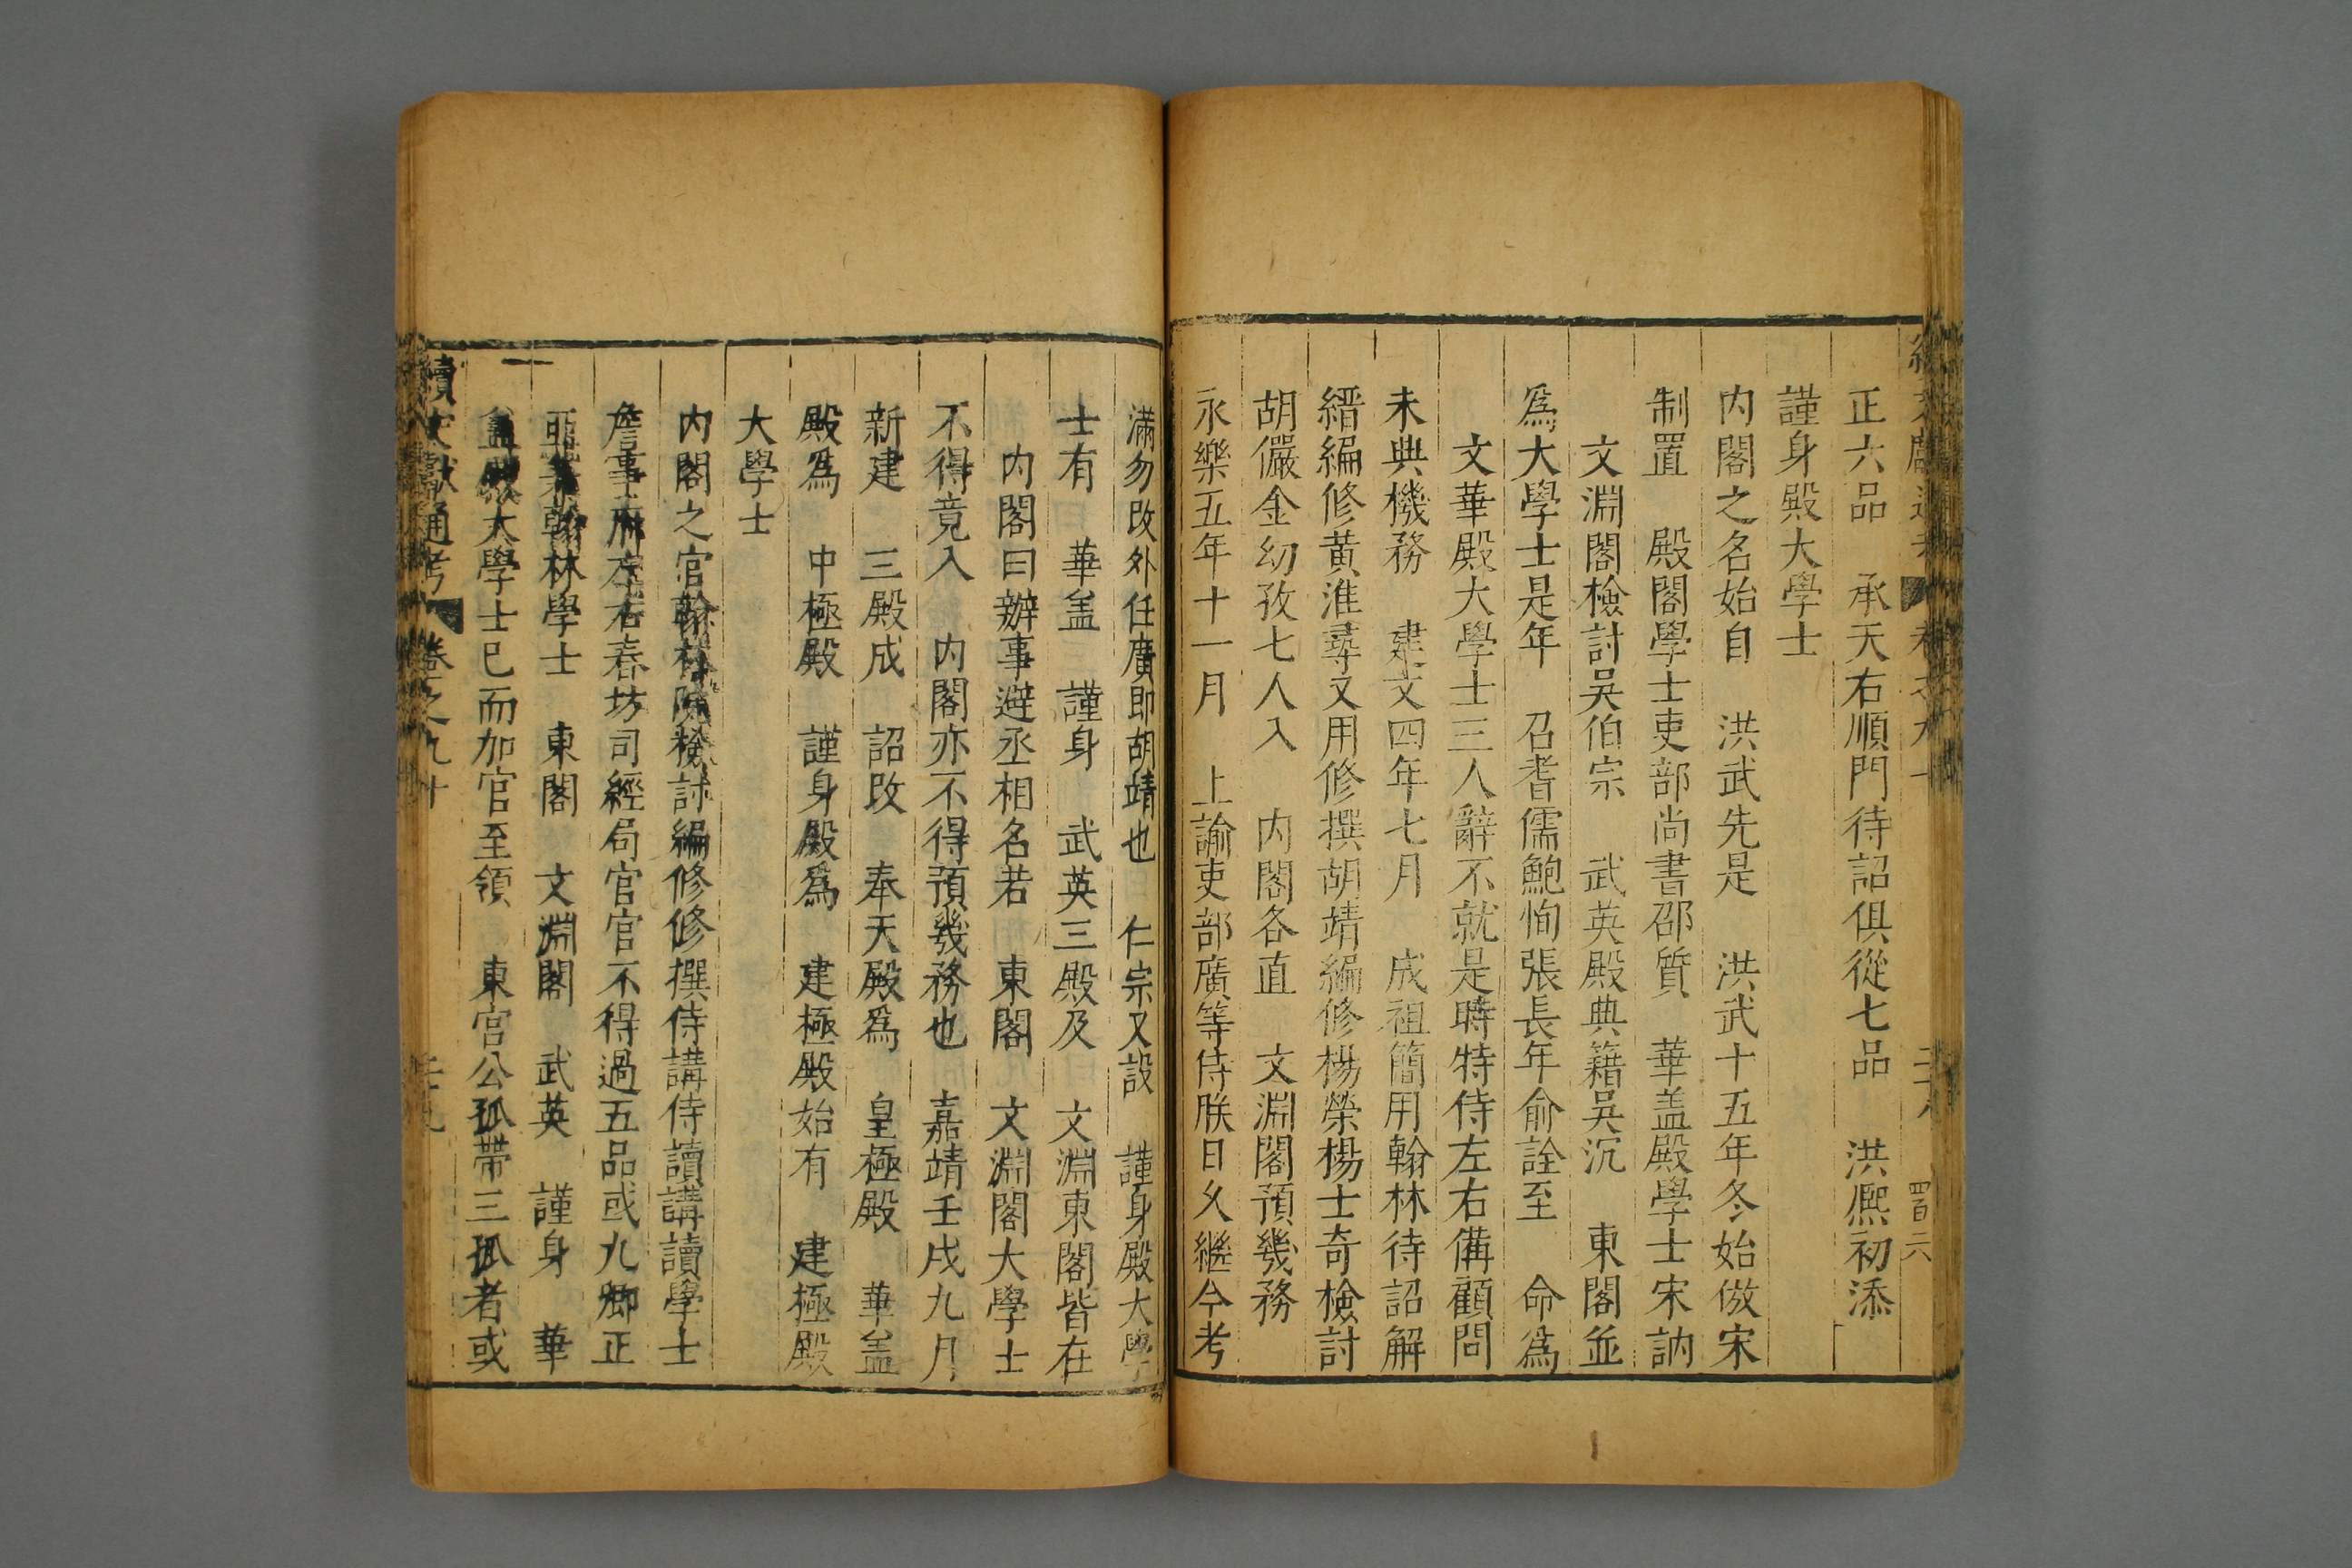 正六品　承天右順門待詔俱從七品　洪熈初添
謹身殿大學士
内閣之名始自　洪武先是　洪武十五年冬始倣宋
制置　殿閣學士吏部尚書邵質　華盖殿學士宋訥
文淵閣檢討吳伯宗　武英殿典籍吳沉　東閣並
爲大學士是年　召耆儒鮑恂張長年俞詮至　命爲
文華殿大學士三人辭不就是時特侍左右備顧問
未典機務　建文四年七月　成祖簡用翰林待詔解
縉編修黄淮尋又用修撰胡靖編修楊榮楊士奇檢討
胡儼金幼孜七人入　内閣各直　文淵閣預幾務
永樂五年十一月　上諭吏部廣等侍朕日久繼今考
滿勿改外任廣即胡靖也　仁宗又設　謹身殿大學
士有　華盖　謹身　武英三殿及　文淵東閣皆在
内閣曰辦事避丞相名若　東閣　文淵閣大學士
不得竟入　内閣亦不得預幾務也　嘉靖壬戌九月
新建　三殿成　詔改　奉天殿爲　皇極殿　華盖
殿爲　中極殿　謹身殿爲　建極殿始有　建極殿
大學士
内閣之官翰林院檢討編修修撰侍講侍讀講讀學士
詹事府左右春坊司經局官官不得過五品或九卿正
亞兼翰林學士　東閣　文淵閣　武英　謹身　華
盖殿大學士已而加官至領　東宮公孤帶三孤者或
續文獻通考　卷之九十　二十九